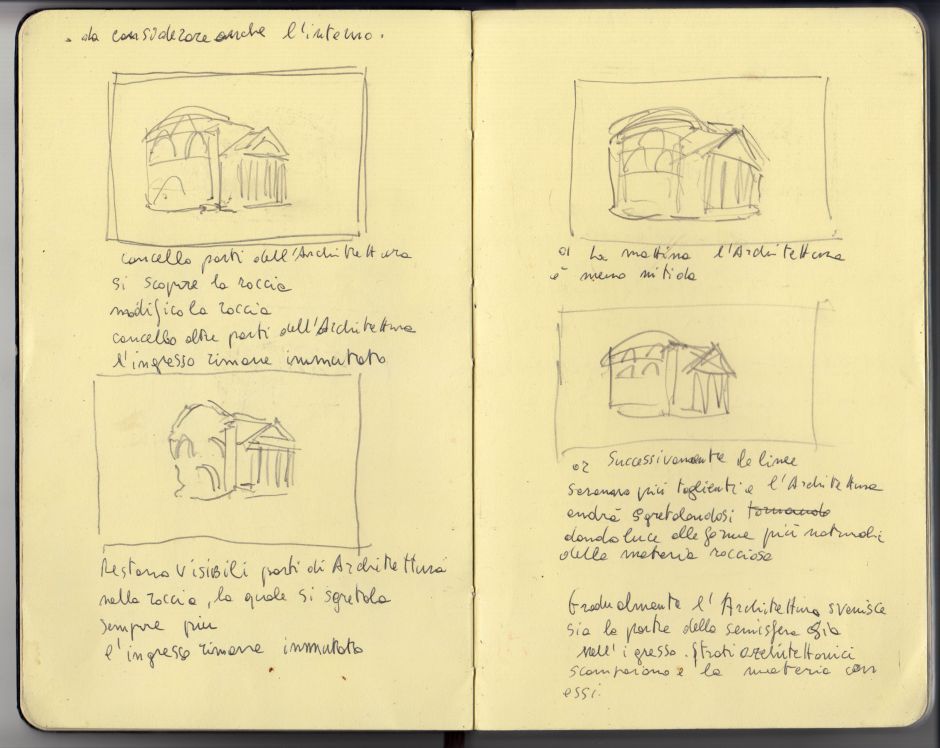 . da considerare anche l'interno.
cancello parti dell'Architettura
si scopre la roccia
modifico la roccia
cancello altre parti dell'Architettura
l'ingresso rimane immutato
Restano visibili parti di Architettura
nella roccia, la quale si sgretola
sempre più
l'ingresso rimane immutato
01 La mattina l'Architettura
è meno nitida
02 Successivamente le linee
saranno più taglienti e l'Architettura
andrà sgretolandosi tornando
dando luce alle forme più naturali
della materia rocciosa
Gradualmente l'Architettura svanisce
sia la parte della semisfera sia
nell'igresso. Strati architettonici
scompaiono e la materia con
essi.